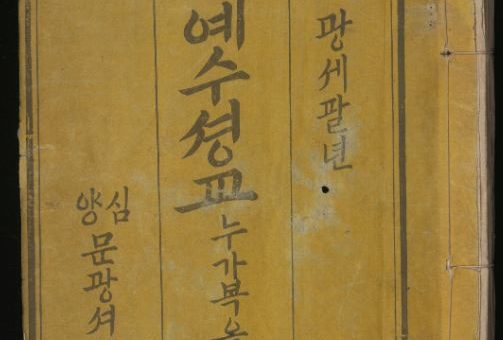 광세팔년
예수셩교누가복
심양
문광셔